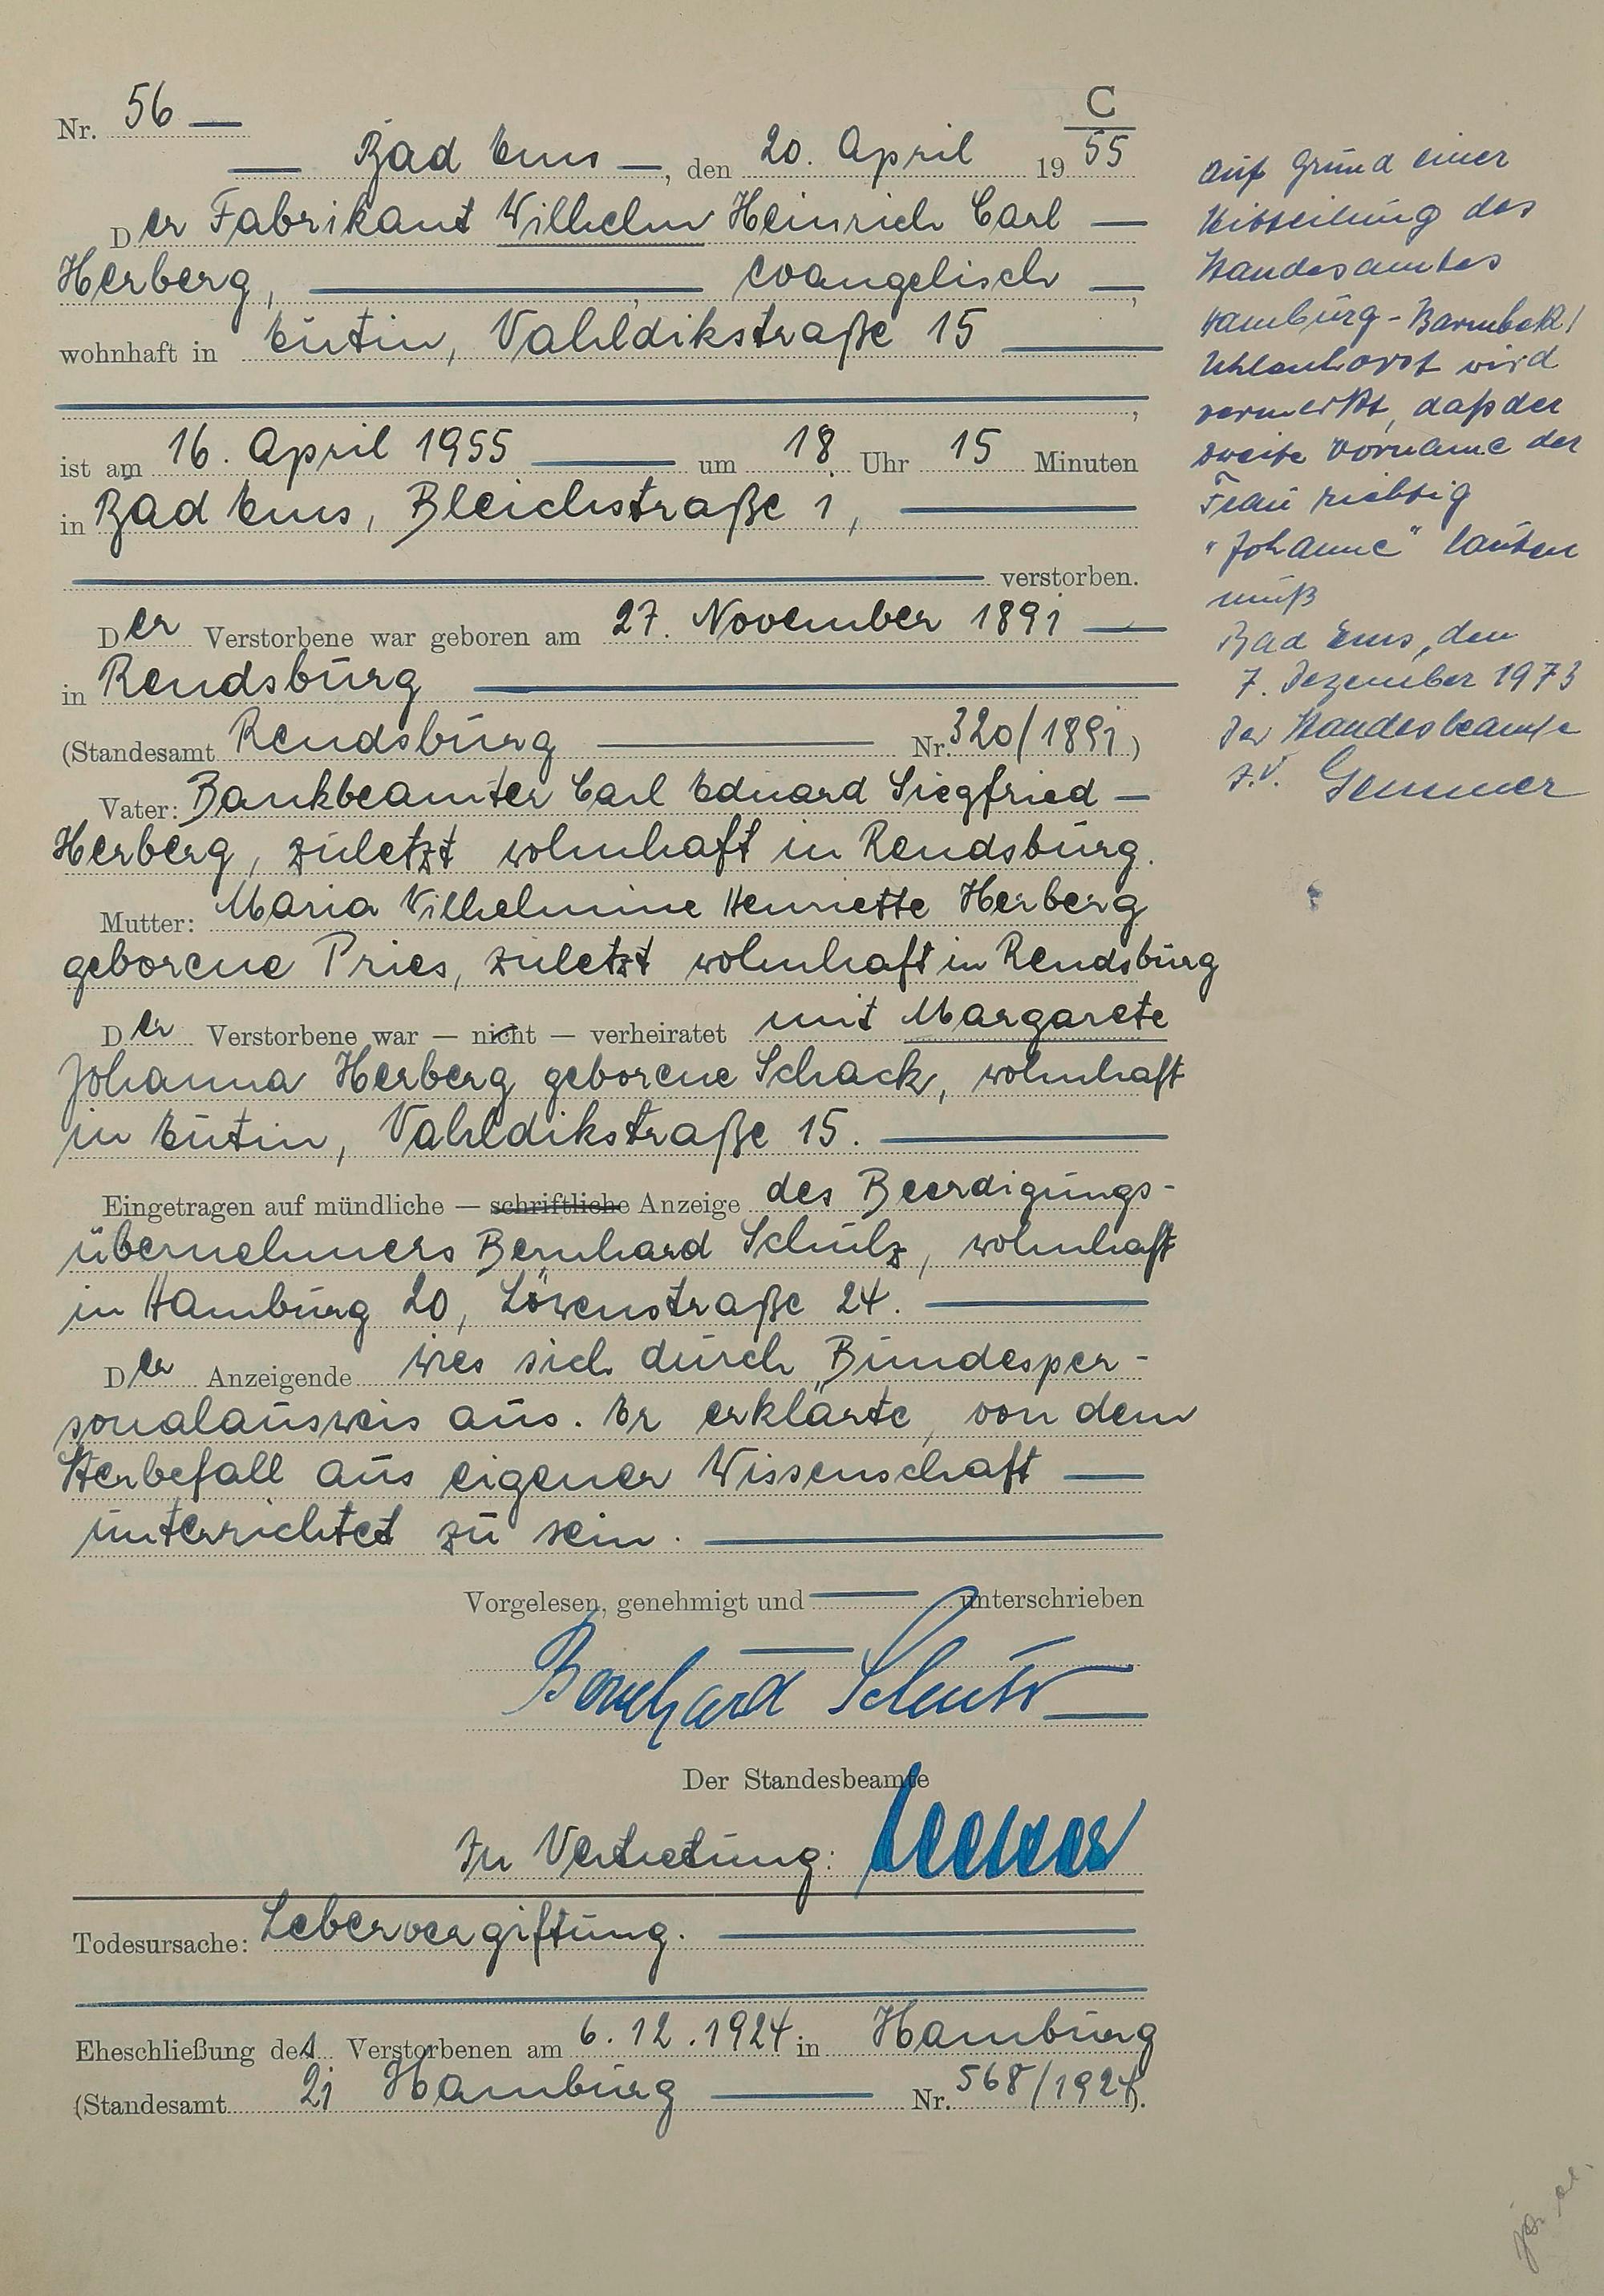 C
Nr. 56 —
— Bad Ems —, den 20. April 1955
Der Fabrikant Wilhelm Heinrich Carl —
Herberg, — evangelisch —,
wohnhaft in Eutin, Vahldikstraße 15 —
,
ist am 16. April 1955 — um 18 Uhr 15 Minuten
in Bad Ems, Bleichstraße 1, —
— verstorben.
Der Verstorbene war geboren am 27. November 1891 —
in Rendsburg —
(Standesamt Rendsburg — Nr. 320/1891)
Vater: Bankbeamter Carl Eduard Siegfried —
Herberg, zuletzt wohnhaft in Rendsburg.
Mutter: Maria Wilhelmine Henriette Herberg
geborene Pries, zuletzt wohnhaft in Rendsburg
Der Verstorbene war — nicht — verheiratet mit Margarete
Johanna Herberg geborene Schack, wohnhaft
in Eutin, Vahldikstraße 15. —
Eingetragen auf mündliche — schriftliche Anzeige des Beerdigungs-
übernehmers Bernhard Schulz, wohnhaft
in Hamburg 20, Löwenstraße 24. —
Der Anzeigende wies sich durch Bundesper-
sonalausweis aus. Er erklärte, von dem
Sterbefall aus eigener Wissenschaft —
unterrichtet zu sein. —
Vorgelesen, genehmigt und — unterschrieben
Bernhard Schulz
Der Standesbeamte
In Vertretung:
Todesursache: Lebervergiftung. —
Eheschließung des Verstorbenen am 6.12.1924 in Hamburg
(Standesamt 21 Hamburg — Nr. 568/1924).
Auf Grund einer
Mitteilung des
Standesamtes
Hamburg-Barmbek/
Uhlenhorst wird
vermerkt, daß der
zweite Vorname der
Frau richtig
"Johanne" lauten
muß
Bad Ems, den
7. Dezember 1973
Der Standesbeamte
I.V. Gemmer